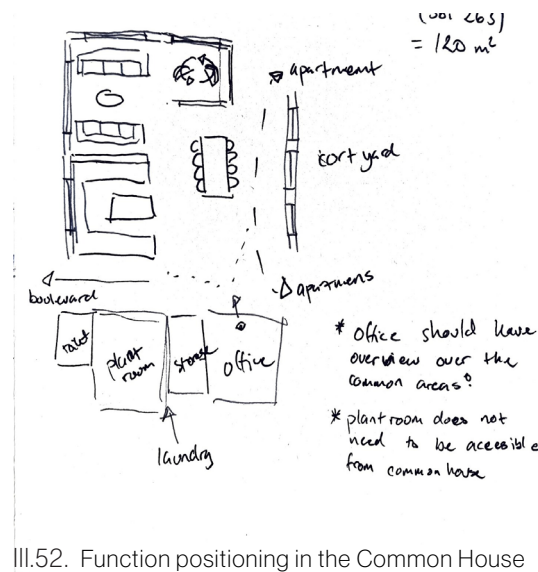 = 120 m²
apartment
cort yard
apartmens
boulevard
toilet
plant
room
storage
office
laundry
* Office should have
overview over the
common areas!
* plant room does not
need to be acessible
from common house
III.52. Function positioning in the Common House